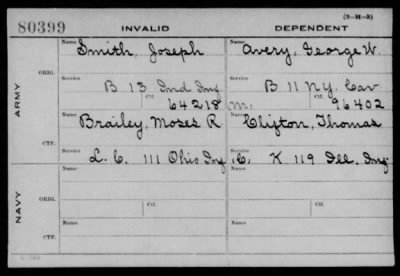 (3-H-3)
80399 INVALID DEPENDENT
Name Smith, Joseph Name Avery, George W.
ORIG.
Service B 13 Ind Inf Service B 11 N.Y. Cav
Ctf. 64218 (M.) Ctf. 96402
ARMY
Name Brailey, Moses R. Name Clifton, Thomas
CTF.
Service L. C. 111 Ohio Inf Service C, K 119 Ill. Inf.
Name Name
ORIG.
Ctf. Ctf.
NAVY
Name Name
CTF.